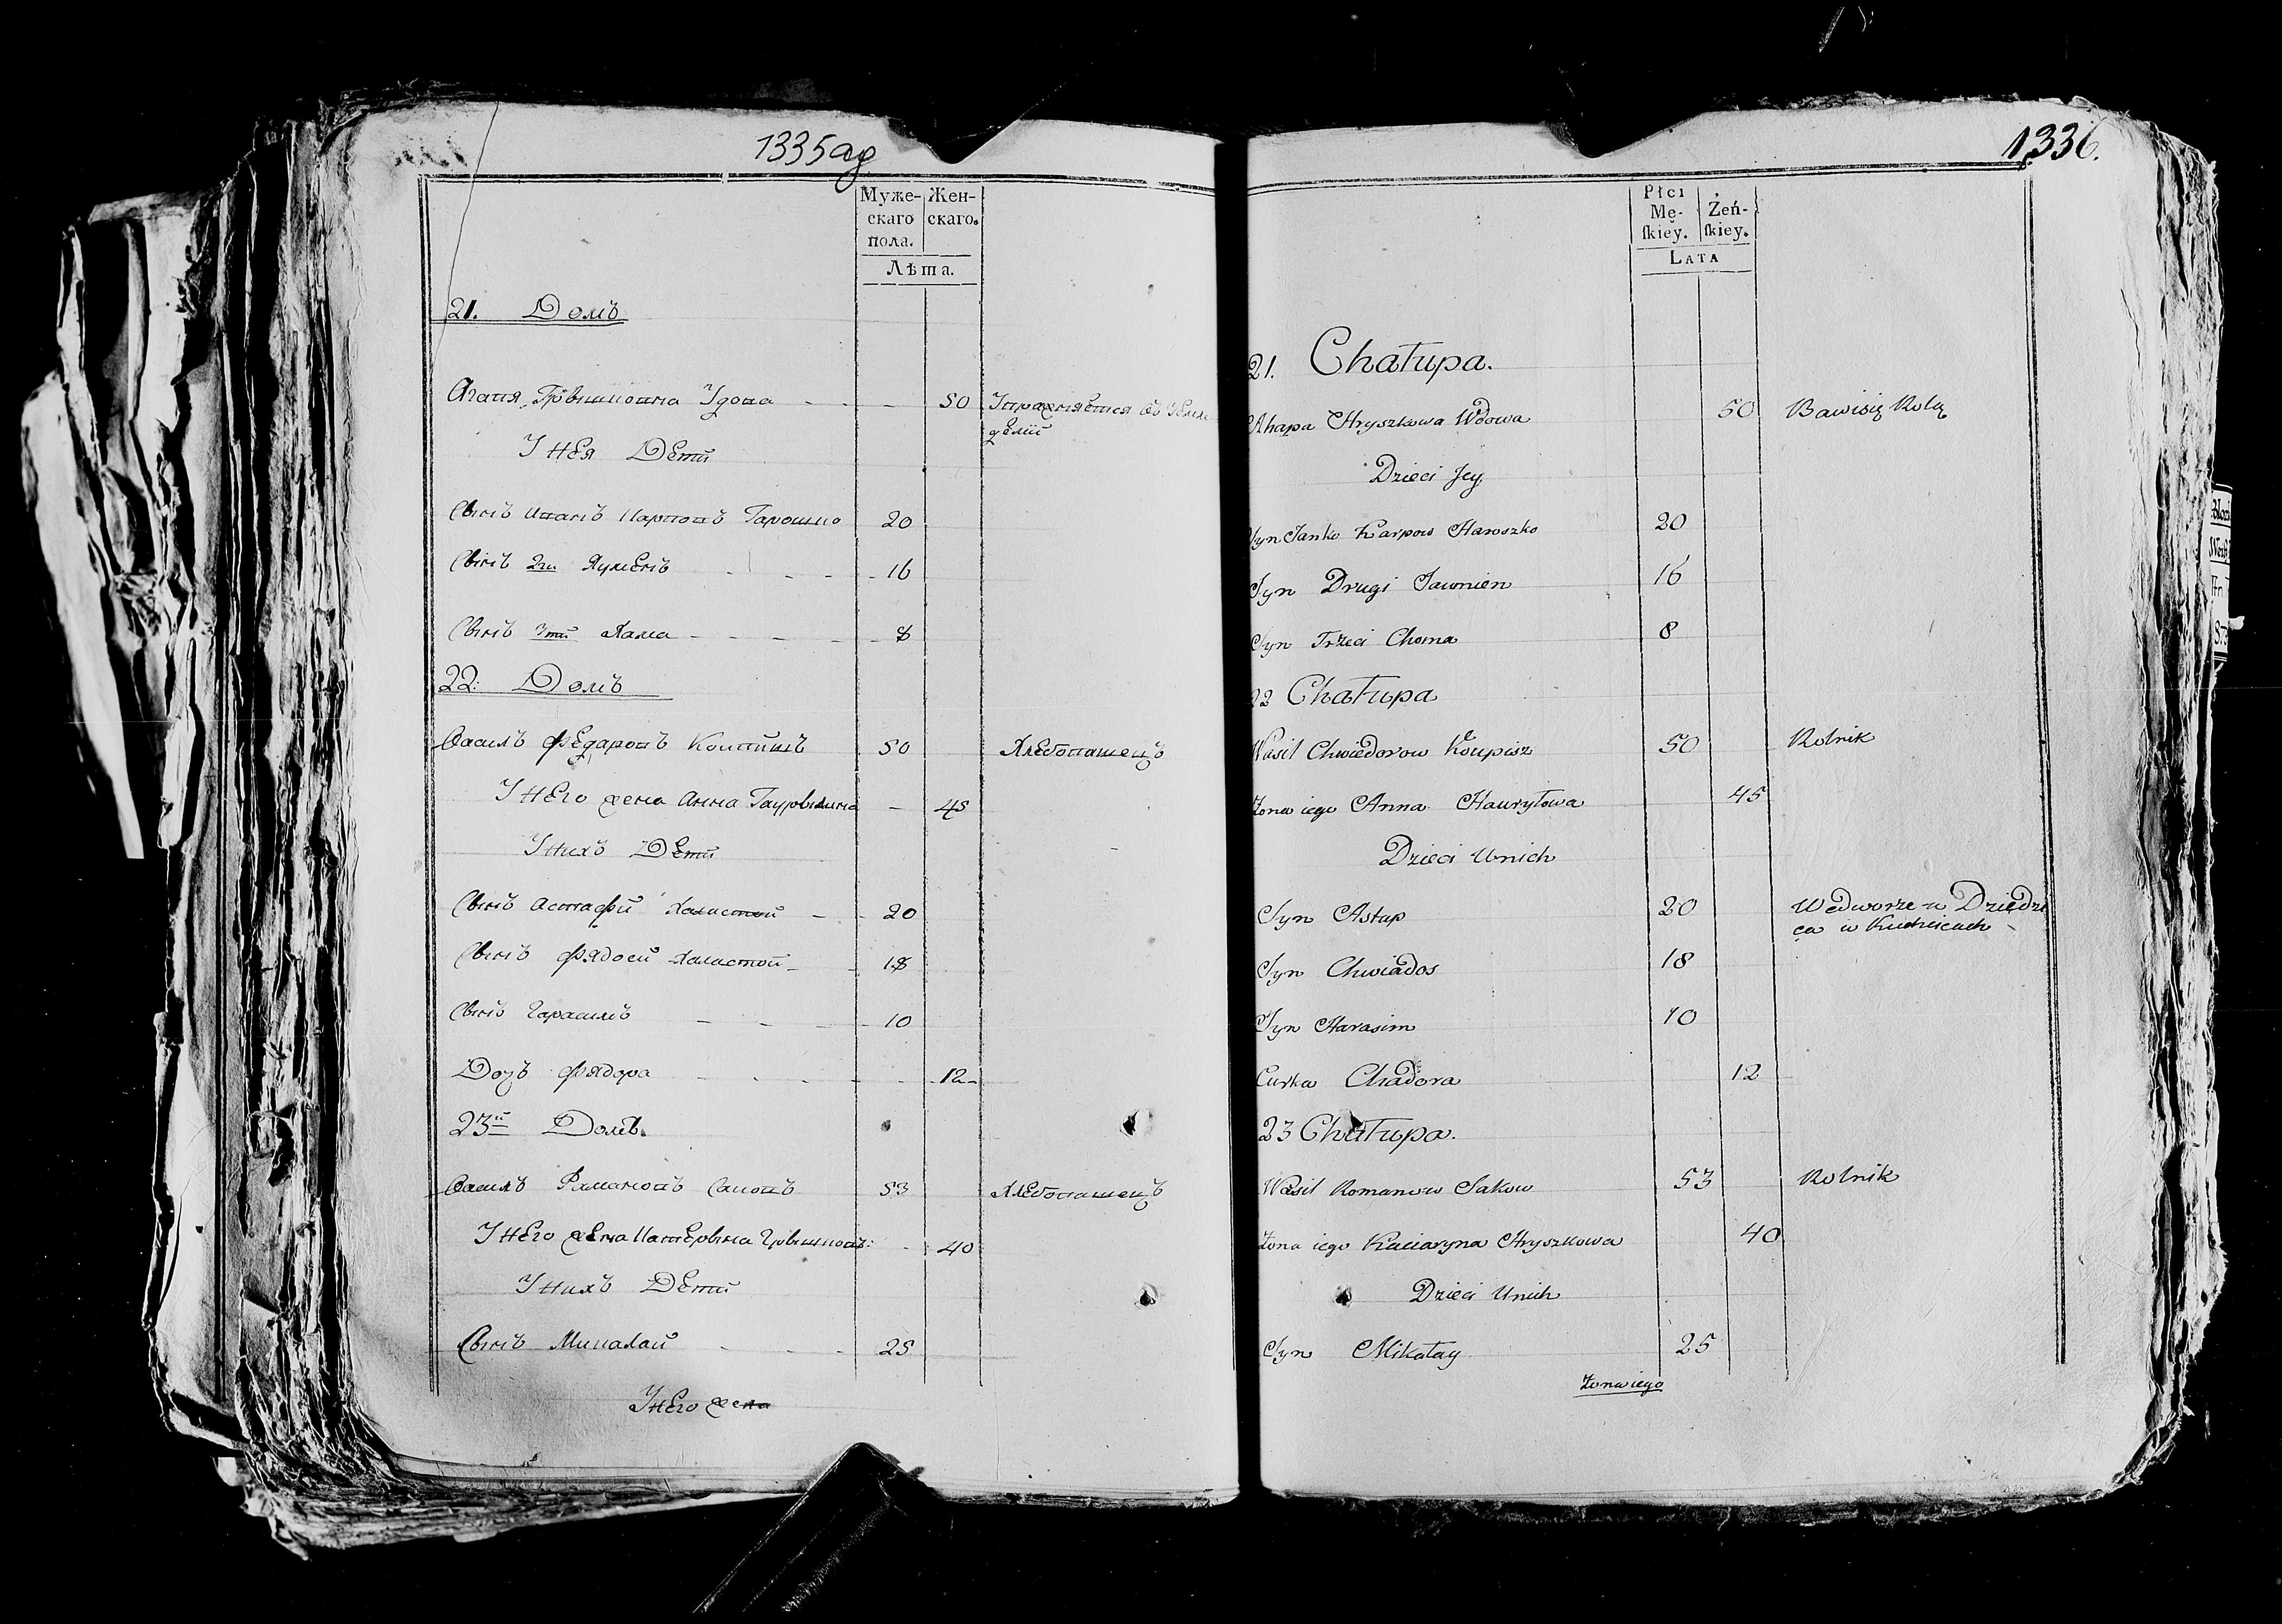 1335ад
Муже- Жен-
скаго скаго.
пола.
Лѣта.
21. Домъ
Агапя Грышковна Удова 50 Упражняется въ Земле
делii
У нея Дети
Сынъ Иванъ Карповъ Гарошко 20
Сынъ 2ги Яуменъ 16
Сынъ 3тiй Хама 8
22: Домъ
Василъ Федаровъ Коупишъ 50 Хлебопашецъ
У него жена Анна Гаурылина 45
У нихъ Дети
Сынъ Астафiй Халастой 20
Сынъ Фядосъ Халастой 18
Сынъ Гарасимъ 10
Дочъ Фядора 12
23й Домъ.
Василъ Рамановъ Саковъ 53 Хлебопашецъ
У него жена Катерына Грышков: 40
У нихъ Дети
Сынъ Микалай 25
У него жена
1336.
Płci
Mę- Żeń-
ſkiey. ſkiey.
LATA
21. Chałupa.
Ahapa Hryszkowa Wdowa 50 Bawisię Rolą
Dzieci Jey
Syn Janko Karpow Haroszko 20
Syn Drugi Jawmien 16
Syn Trzeci Choma 8
22 Chałupa
Wasil Chwiedorow Koupisz 50 Rolnik
Żona iego Anna Hauryłowa 45
Dzieci Unich
Syn Astap 20 Wedworze u Dziedzi
ca w
Syn Chwiados 18
Syn Harasim 10
Curka Chadora 12
23 Chałupa.
Wasil Romanow Sakow 53 Rolnik
Żona iego Kaciaryna Hryszkowa 40
Dzieci Unich
Syn Mikołay 25
Żona iego